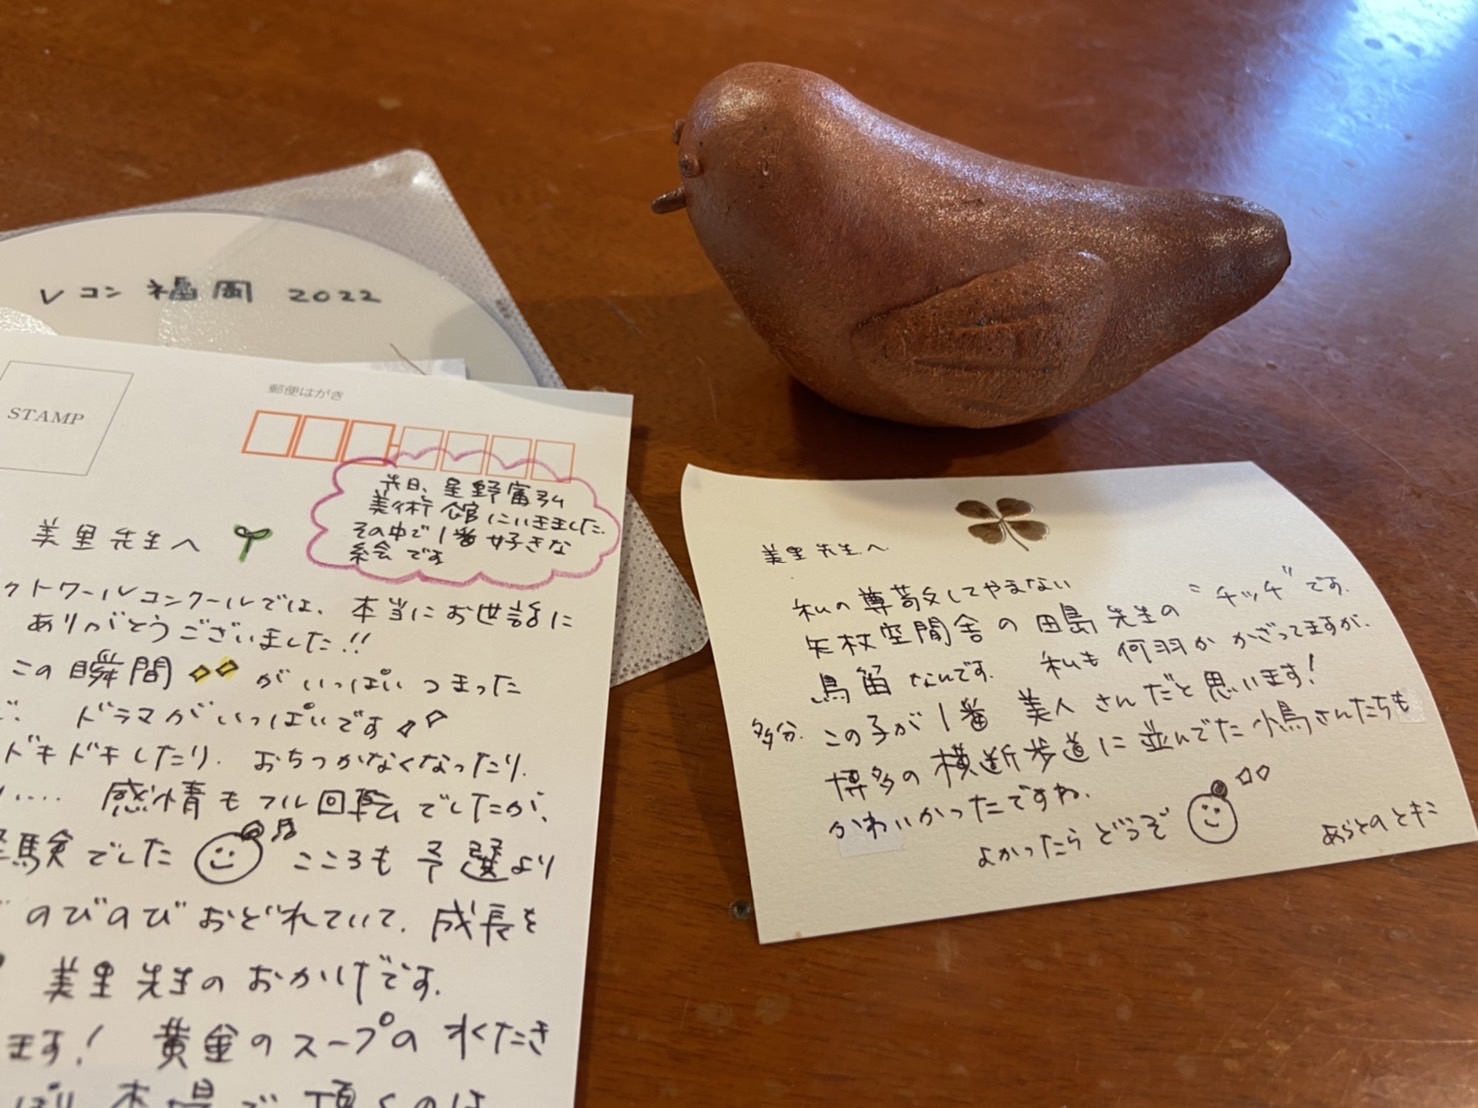 レコン 福岡 2022
STAMP
郵便はがき
先日、星野富弘
美術館にいきました。
その中で1番好きな
絵です
美里先生へ
クトワールコンクールでは、本当にお世話に
ありがとうございました!!
この瞬間がいっぱいつまった
ドラマがいっぱいです
ドキドキしたり、おちつかなくなったり、
感情もフル回転でしたが、
験でした こころも予選より
のびのびおどれていて、成長を
美里先生のおかげです。
ます! 黄金のスープの水たき
本場で頂くのは
美里先生へ
私の尊敬してやまない
矢杖空間舎の田島先生の"チッチ"です。
鳥笛なんです。 私も何羽かかざってますが、
多分、この子が1番美人さんだと思います!
博多の横断歩道に並んでた小鳥さんたちも
かわいかったですね。
よかったらどうぞ
あらとのとキこ